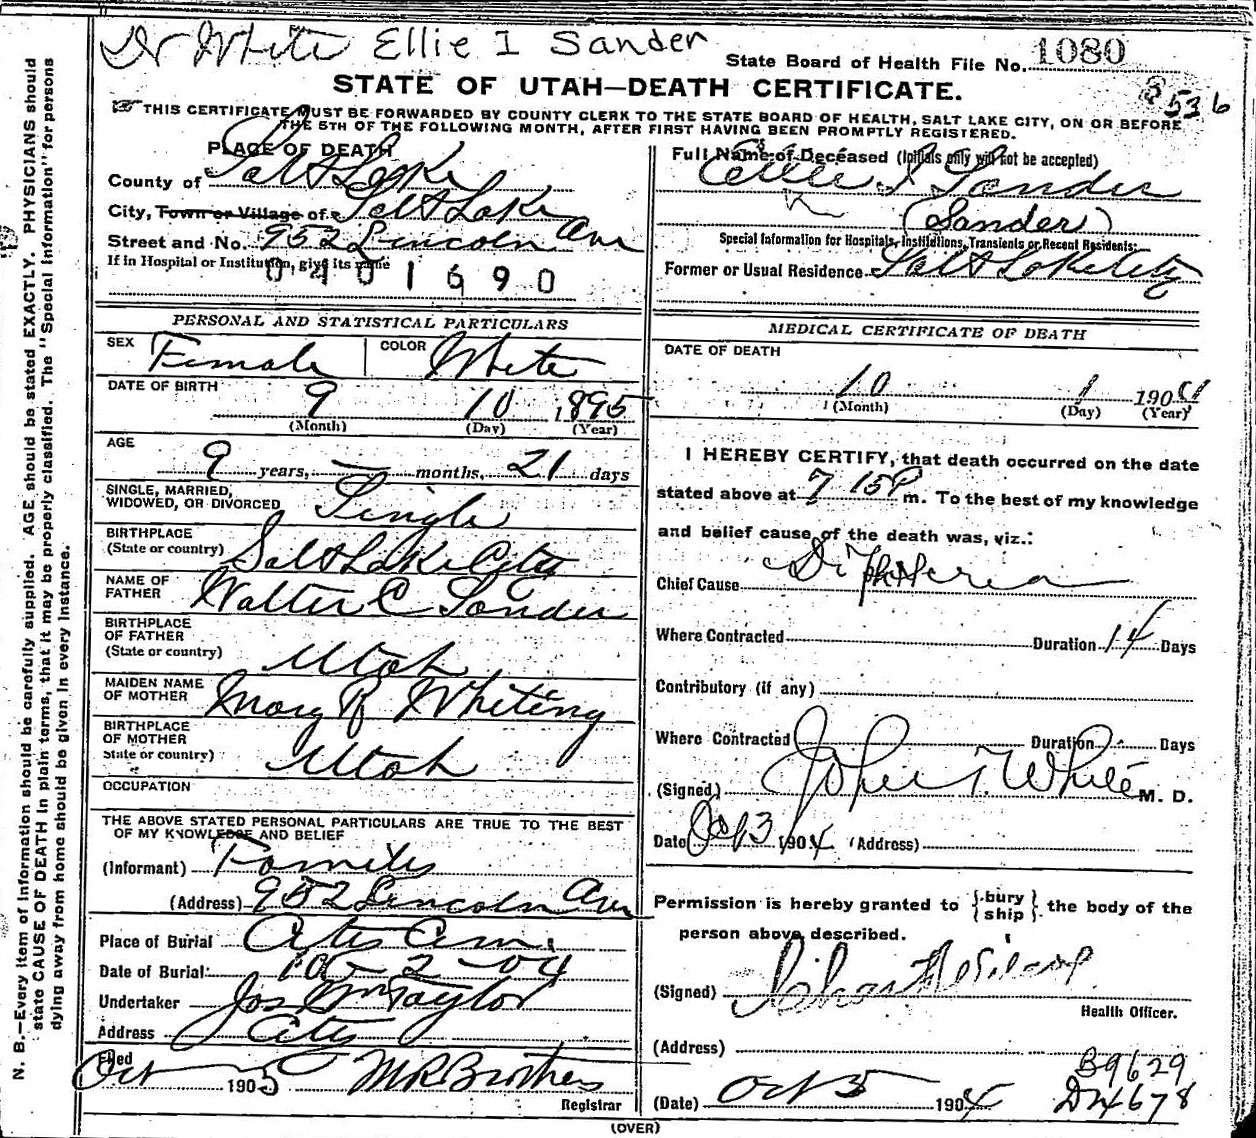 Dr White Ellie I Sander
State Board of Health File No. 1080
STATE OF UTAH—DEATH CERTIFICATE.
536
THIS CERTIFICATE MUST BE FORWARDED BY COUNTY CLERK TO THE STATE BOARD OF HEALTH, SALT LAKE CITY, ON OR BEFORE
THE 5TH OF THE FOLLOWING MONTH, AFTER FIRST HAVING BEEN PROMPTLY REGISTERED.
PLACE OF DEATH
County of Salt Lake
City, Town or Village of Salt Lake
Street and No. 952 Lincoln Ave
If in Hospital or Institution, give its name
0401690
PERSONAL AND STATISTICAL PARTICULARS
SEX Female COLOR White
DATE OF BIRTH
9 10 1895
(Month) (Day) (Year)
AGE
9 years, — months, 21 days
SINGLE, MARRIED,
WIDOWED, OR DIVORCED Single
BIRTHPLACE
(State or country) Salt Lake City
NAME OF
FATHER Walter C Sander
BIRTHPLACE
OF FATHER
(State or country) Utah
MAIDEN NAME
OF MOTHER Mary R Whiting
BIRTHPLACE
OF MOTHER
State or country) Utah
OCCUPATION
THE ABOVE STATED PERSONAL PARTICULARS ARE TRUE TO THE BEST
OF MY KNOWLEDGE AND BELIEF
(Informant) Family
(Address) 952 Lincoln Ave
Place of Burial City Cem.
Date of Burial: 10-2-04
Undertaker Jos Wm Taylor
Address City
Filed
Oct 5 1905 M R Brothers
Registrar
Full Name of Deceased (Initials only will not be accepted)
Ellie I Sander
(Sander)
Special Information for Hospitals, Institutions, Transients or Recent Residents:
Former or Usual Residence Salt Lake City
MEDICAL CERTIFICATE OF DEATH
DATE OF DEATH
10 1 1904
(Month) (Day) (Year)
I HEREBY CERTIFY, that death occurred on the date
stated above at 7 15 P m. To the best of my knowledge
and belief cause of the death was, viz.:
Chief Cause Diphtheria
Where Contracted Duration 14 Days
Contributory (if any)
Where Contracted Duration Days
(Signed) John T. White M. D.
Date Oct 3 1904 (Address)
Permission is hereby granted to {bury
ship} the body of the
person above described.
(Signed)
Health Officer.
(Address)
B9629
(Date) Oct 5 1904 D24678
(OVER)
N. B.—Every item of information should be carefully supplied. AGE should be stated EXACTLY. PHYSICIANS should
state CAUSE OF DEATH in plain terms, that it may be properly classified. The "Special Information" for persons
dying away from home should be given in every instance.